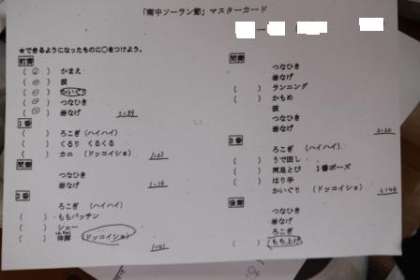 「南中ソーラン節」マスターカード
★できるようになったものに○をつけよう。
前奏
( ○ ) かまえ
( ○ ) 波
( ○ )
( ○ ) つなひき
( ○ ) 岩なげ
1番
( ) ろこぎ(ハイハイ)
( ) くるり くるくる
( ) カニ (ドッコイショ)
間奏
つなひき
岩なげ
2番
ろこぎ (ハイハイ)
( ) ももパッチン
( ) シュー
( ) (ドッコイショ)
間奏
つなひき
岩なげ
( ) ランニング
( ) かもめ
波
つなひき
岩なげ
3番
ろこぎ (ハイハイ)
( ) うで回し
( ) 1番ポーズ
( ) はり手
かいぐり (ドッコイショ)
後奏
つなひき
岩なげ
ろこぎ
( ) もち上げ